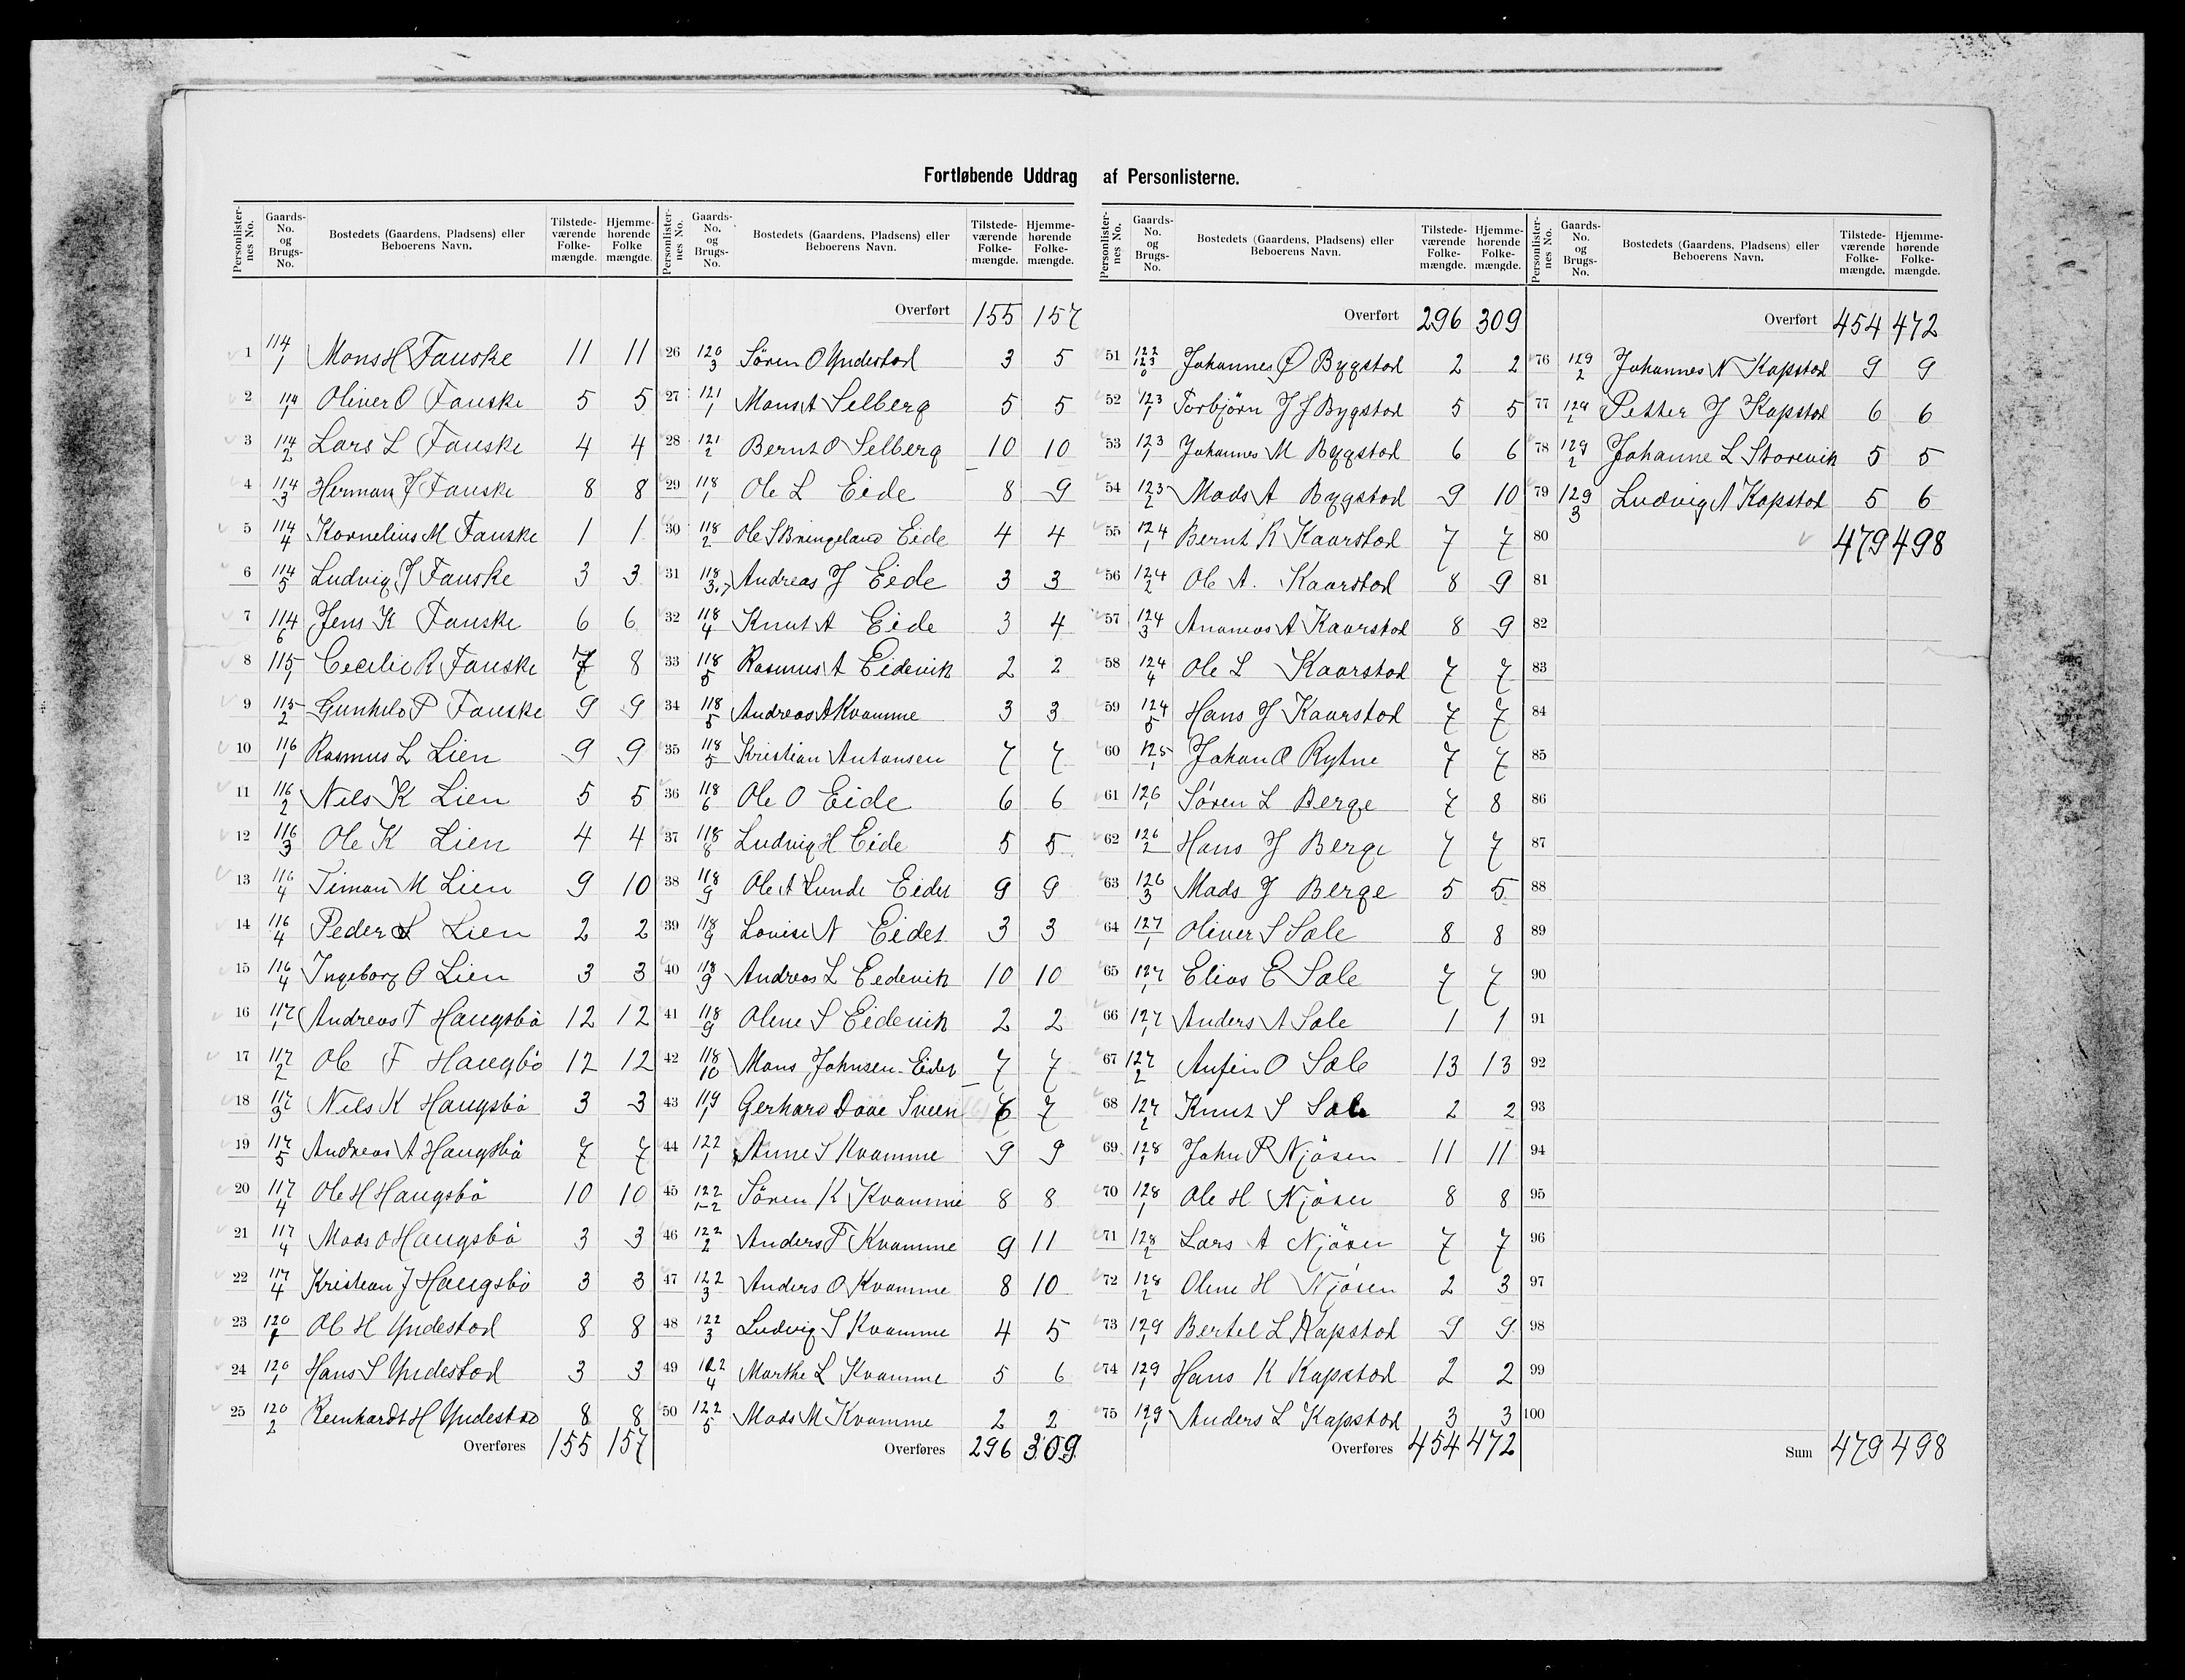 Fortløbende Uddrag af Personlisterne.
Personlisternes No. Gaards-No. og Brugs-No. Bostedets (Gaardens, Pladsens) eller Beboerens Navn. Tilstedeværende Folkemængde. Hjemmehørende Folkemængde.
1 114/1 Mons H Fauske 11 11
2 114/1 Oliver O Fauske 5 5
3 114/2 Lars L Fauske 4 4
4 114/3 Herman J Fauske 8 8
5 114/4 Kornelius M Fauske 1 1
6 114/5 Ludvig J Fauske 3 3
7 114/6 Jens K Fauske 6 6
8 115/1 Cecilie R Fauske 7 8
9 115/2 Gunhild P Fauske 9 9
10 116/1 Rasmus L Lien 9 9
11 116/2 Nils K Lien 5 5
12 116/3 Ole K Lien 4 4
13 116/4 Timan M Lien 9 10
14 116/4 Peder L Lien 2 2
15 116/4 Ingeborg O Lien 3 3
16 117/1 Andreas T Haugsbö 12 12
17 117/2 Ole F Haugbö 12 12
18 117/3 Nils K Haugsbö 3 3
19 117/5 Andreas A Haugsbö 7 7
20 117/4 Ole H Haugsbö 10 10
21 117/4 Mads O Haugsbö 3 3
22 117/4 Kristian J Haugsbö 3 3
23 120/1 Ole H Yndestad 8 8
24 120/1 Hans S Yndestad 3 3
25 120/2 Reinhardt H Yndestad 8 8
Overføres 155 157
Personlisternes No. Gaards-No. og Brugs-No. Bostedets (Gaardens, Pladsens) eller Beboerens Navn. Tilstedeværende Folkemængde. Hjemmehørende Folkemængde.
Overført 155 157
26 120/3 Sören O Yndestad 3 5
27 121/1 Mons A Selberg 5 5
28 121/2 Bernt O Selberg 10 10
29 118/1 Ole L Eide 8 9
30 118/2 Ole S Bringeland Eide 4 4
31 118/3.7 Andreas J Eide 3 3
32 118/4 Knut A Eide 3 4
33 118/5 Rasmus A Eidevik 2 2
34 118/5 Andreas A Kvamme 3 3
35 118/5 Kristian Antonsen 7 7
36 118/6 Ole O Eide 6 6
37 118/8 Ludvig H Eide 5 5
38 118/9 Ole A Lunde Eidet 9 9
39 118/9 Lovise N Eidet 3 3
40 118/9 Andreas L Eidevik 10 10
41 118/9 Oline S Eidevik 2 2
42 118/10 Mons Johnsen Eidet 7 7
43 119/1 Gerhard Daae Sveen 6 7
44 122/1 Anne S Kvamme 9 9
45 122/1-2 Sören K Kvamme 8 8
46 122/2 Anders T Kvamme 9 11
47 122/3 Anders O Kvamme 8 10
48 122/3 Ludvig S Kvamme 4 5
49 122/4 Marthe L Kvamme 5 6
50 122/5 Mads M Kvamme 2 2
Overføres 296 309
Personlisternes No. Gaards-No. og Brugs-No. Bostedets (Gaardens, Pladsens) eller Beboerens Navn. Tilstedeværende Folkemængde. Hjemmehørende Folkemængde.
Overført 296 309
51 122 123/0 Johannes Ø Bygstad 2 2
52 123/1 Torbjörn J J Bygstad 5 5
53 123/1 Johannes M Bygstad 6 6
54 123/2 Mads A Bygstad 9 10
55 124/1 Bernt R Kaarstad 7 7
56 124/2 Ole A. Kaarstad 8 9
57 124/3 Ananias A Kaarstad 8 9
58 124/4 Ole L Kaarstad 7 7
59 124/5 Hans J Kaarstad 7 7
60 125/1 Johan O Rytne 7 7
61 126/1 Sören L Berge 7 8
62 126/2 Hans J Berge 7 7
63 126/3 Mads J Berge 5 5
64 127/1 Oliver S Sale 8 8
65 127/1 Elias E Sale 7 7
66 127/1 Anders A Sale 1 1
67 127/2 Anfin O Sale 13 13
68 127/2 Knut S Sale 2 2
69 128/1 John P Njösen 11 11
70 128/1 Ole H Njösen 8 8
71 128/2 Lars A Njösen 7 7
72 128/2 Oline H Njösen 2 3
73 129/1 Bertel L Kapstad 9 9
74 129/1 Hans K Kapstad 2 2
75 129/1 Anders L Kapstad 3 3
Overføres 454 472
Personlisternes No. Gaards-No. og Brugs-No. Bostedets (Gaardens, Pladsens) eller Beboerens Navn. Tilstedeværende Folkemængde. Hjemmehørende Folkemængde.
Overført 454 472
76 129/2 Johannes N Kapstad 9 9
77 129/2 Petter J Kapstad 6 6
78 129/2 Johanne L Storevik 5 5
79 129/3 Ludvig A Kapstad 5 6
80 479 498
81
82
83
84
85
86
87
88
89
90
91
92
93
94
95
96
97
98
99
100
Sum 479 498